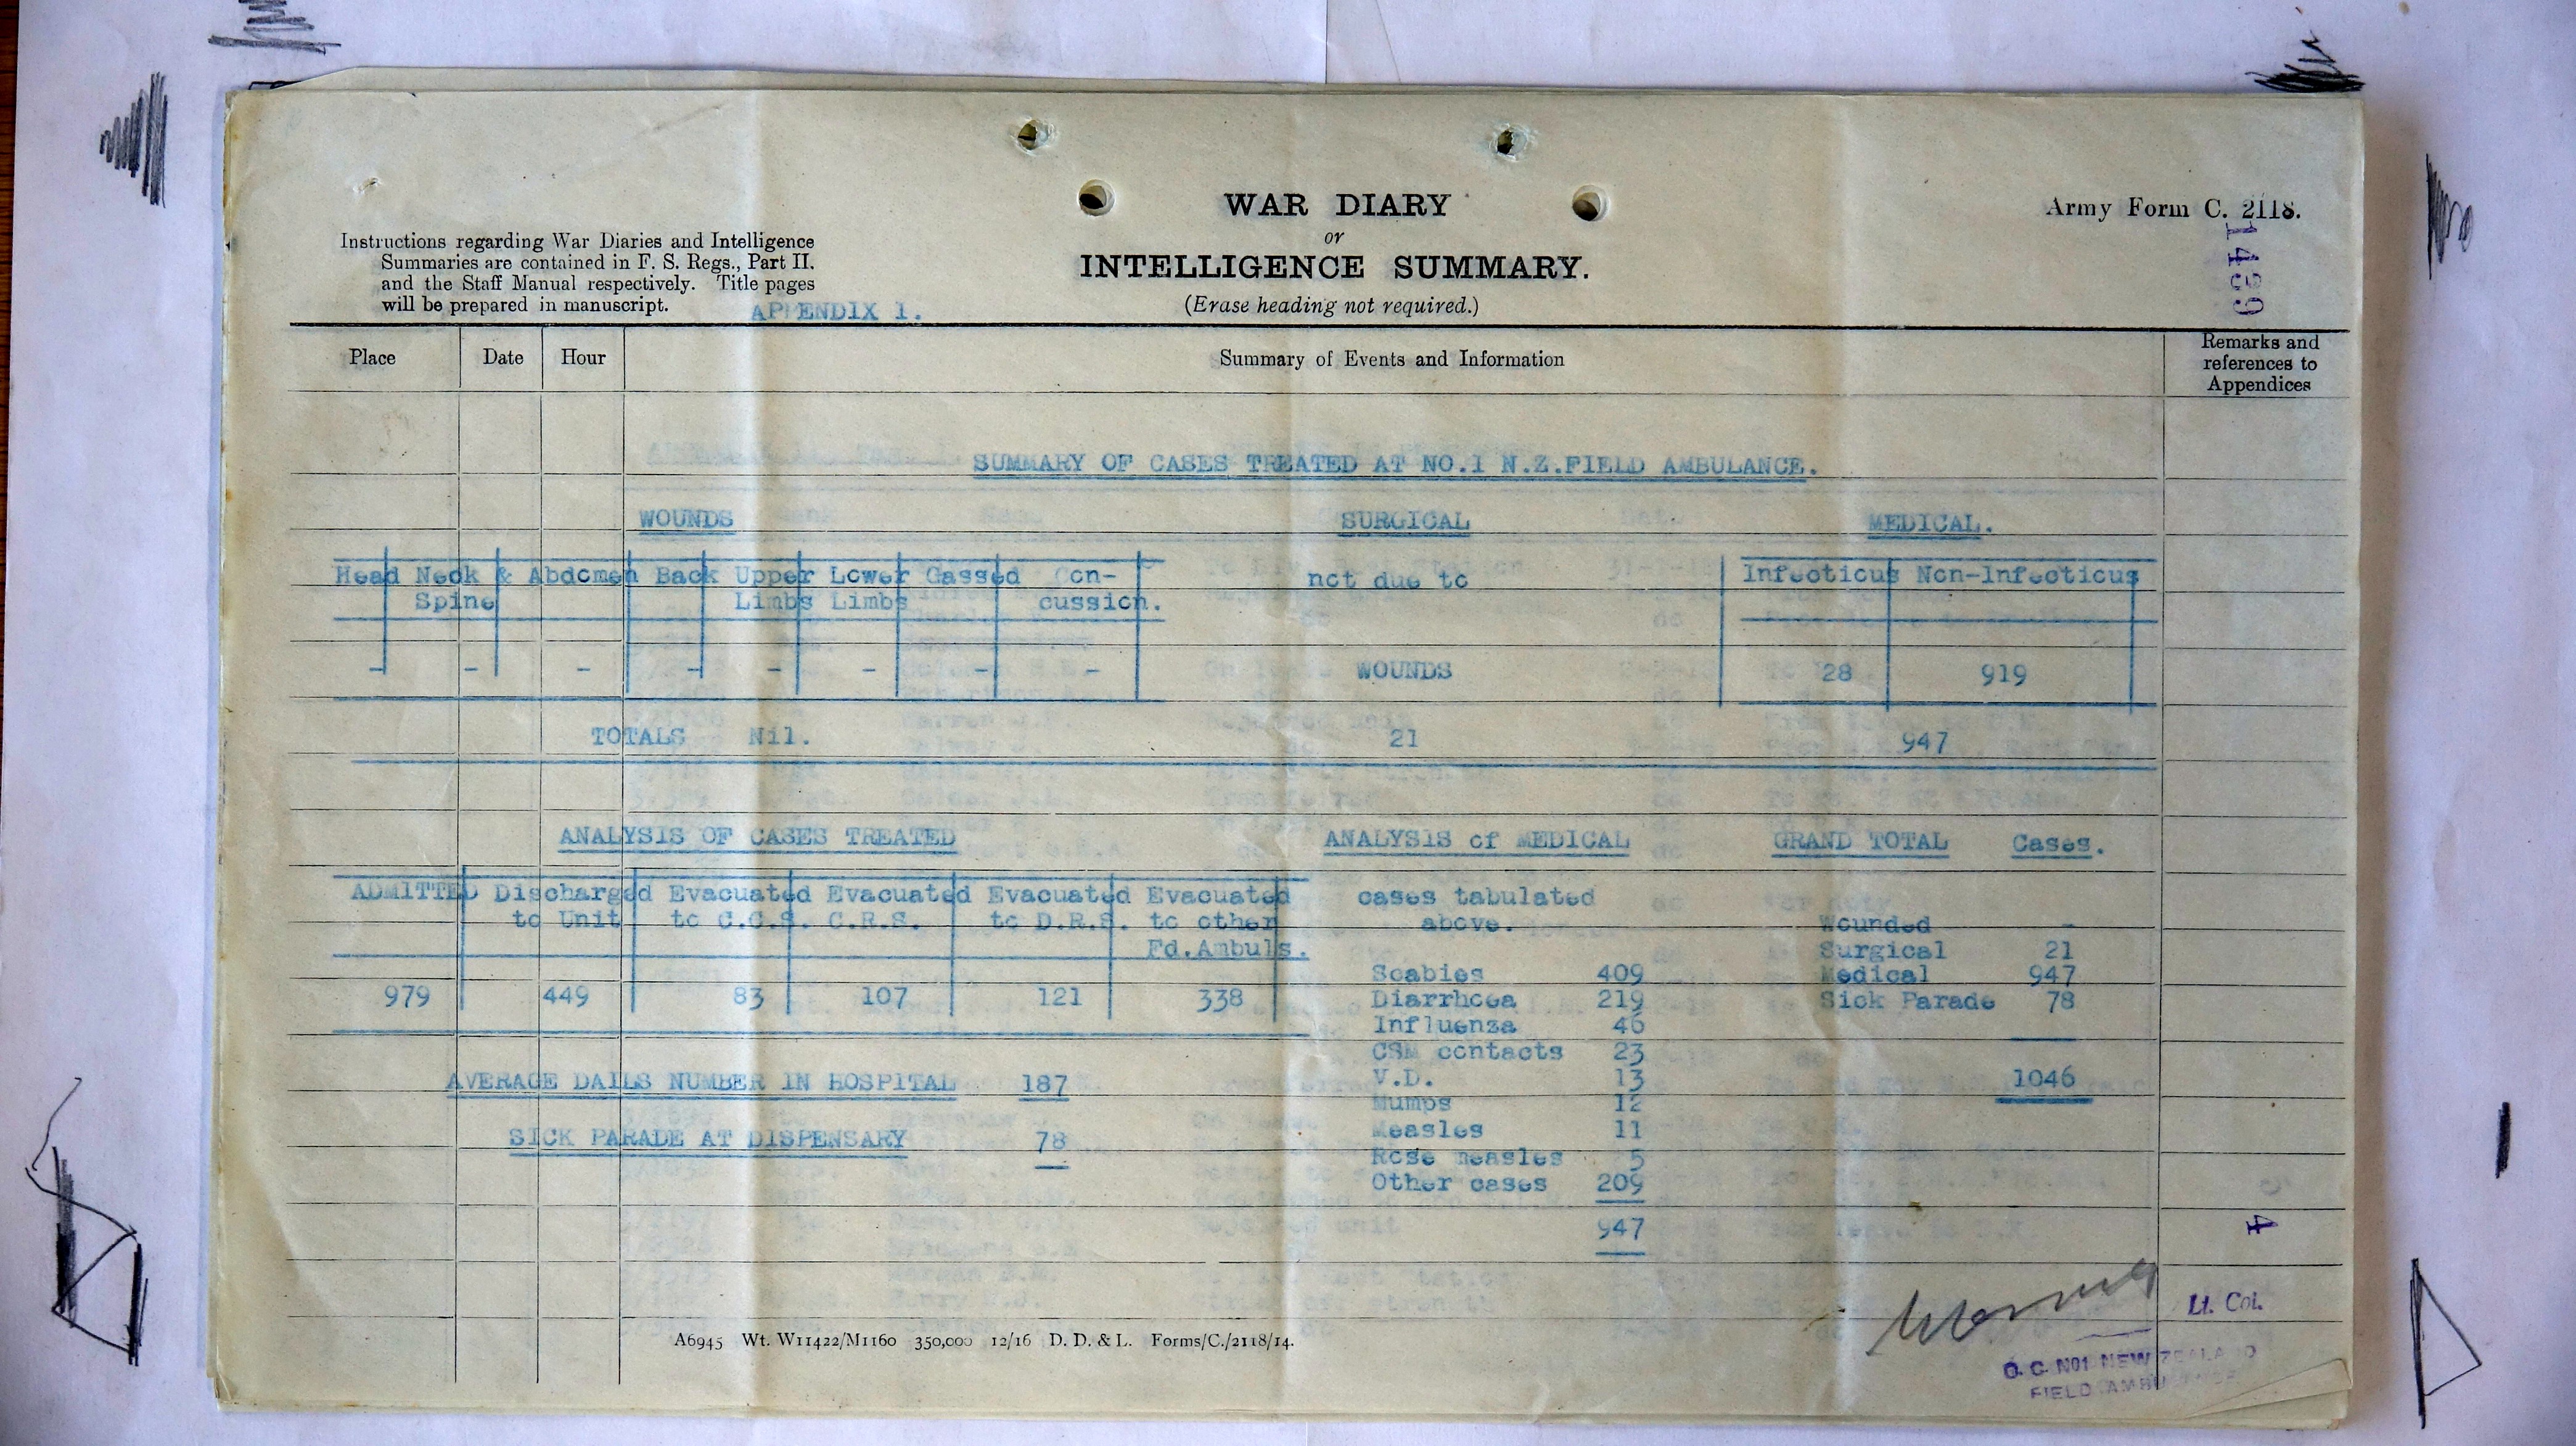 WAR DIARY
or
INTELLIGENCE SUMMARY.
(Erase heading not required.)
Army Form C. 2118.
11439
Instructions regarding War Diaries and Intelligence
Summaries are contained in F. S. Regs., Part II.
and the Staff Manual respectively. Title pages
will be prepared in manuscript.
APPENDIX 1.
Place Date Hour Summary of Events and Information Remarks and references to Appendices
SUMMARY OF CASES TREATED AT NO.1 N.Z.FIELD AMBULANCE.
WOUNDS SURGICAL MEDICAL.
Head Neck & Abdomen Back Upper Lower Gassed Con- not due to Infectious Non-Infectious
Spine Limbs Limbs cussion.
- - - - - - - - WOUNDS 28 919
TOTALS Nil. 21 947
ANALYSIS OF CASES TREATED ANALYSIS of MEDICAL GRAND TOTAL Cases.
ADMITTED Discharged Evacuated Evacuated Evacuated Evacuated cases tabulated
to Unit to C.C.S. C.R.S. to D.R.S. to other above. Wounded -
Fd.Ambuls. Surgical 21
Scabies 409 Medical 947
979 449 83 107 121 338 Diarrhoea 219 Sick Parade 78
Influenza 46
CSM contacts 23
AVERAGE DAILS NUMBER IN HOSPITAL 187 V.D. 13 1046
Mumps 12
SICK PARADE AT DISPENSARY 78 Measles 11
Rose measles 5
Other cases 209
947
4
Lt. Col.
O. C. NO1 NEW ZEALAND
FIELD AMBULANCE
A6945 Wt. W11422/M1160 350,000 12/16 D. D. & L. Forms/C./2118/14.